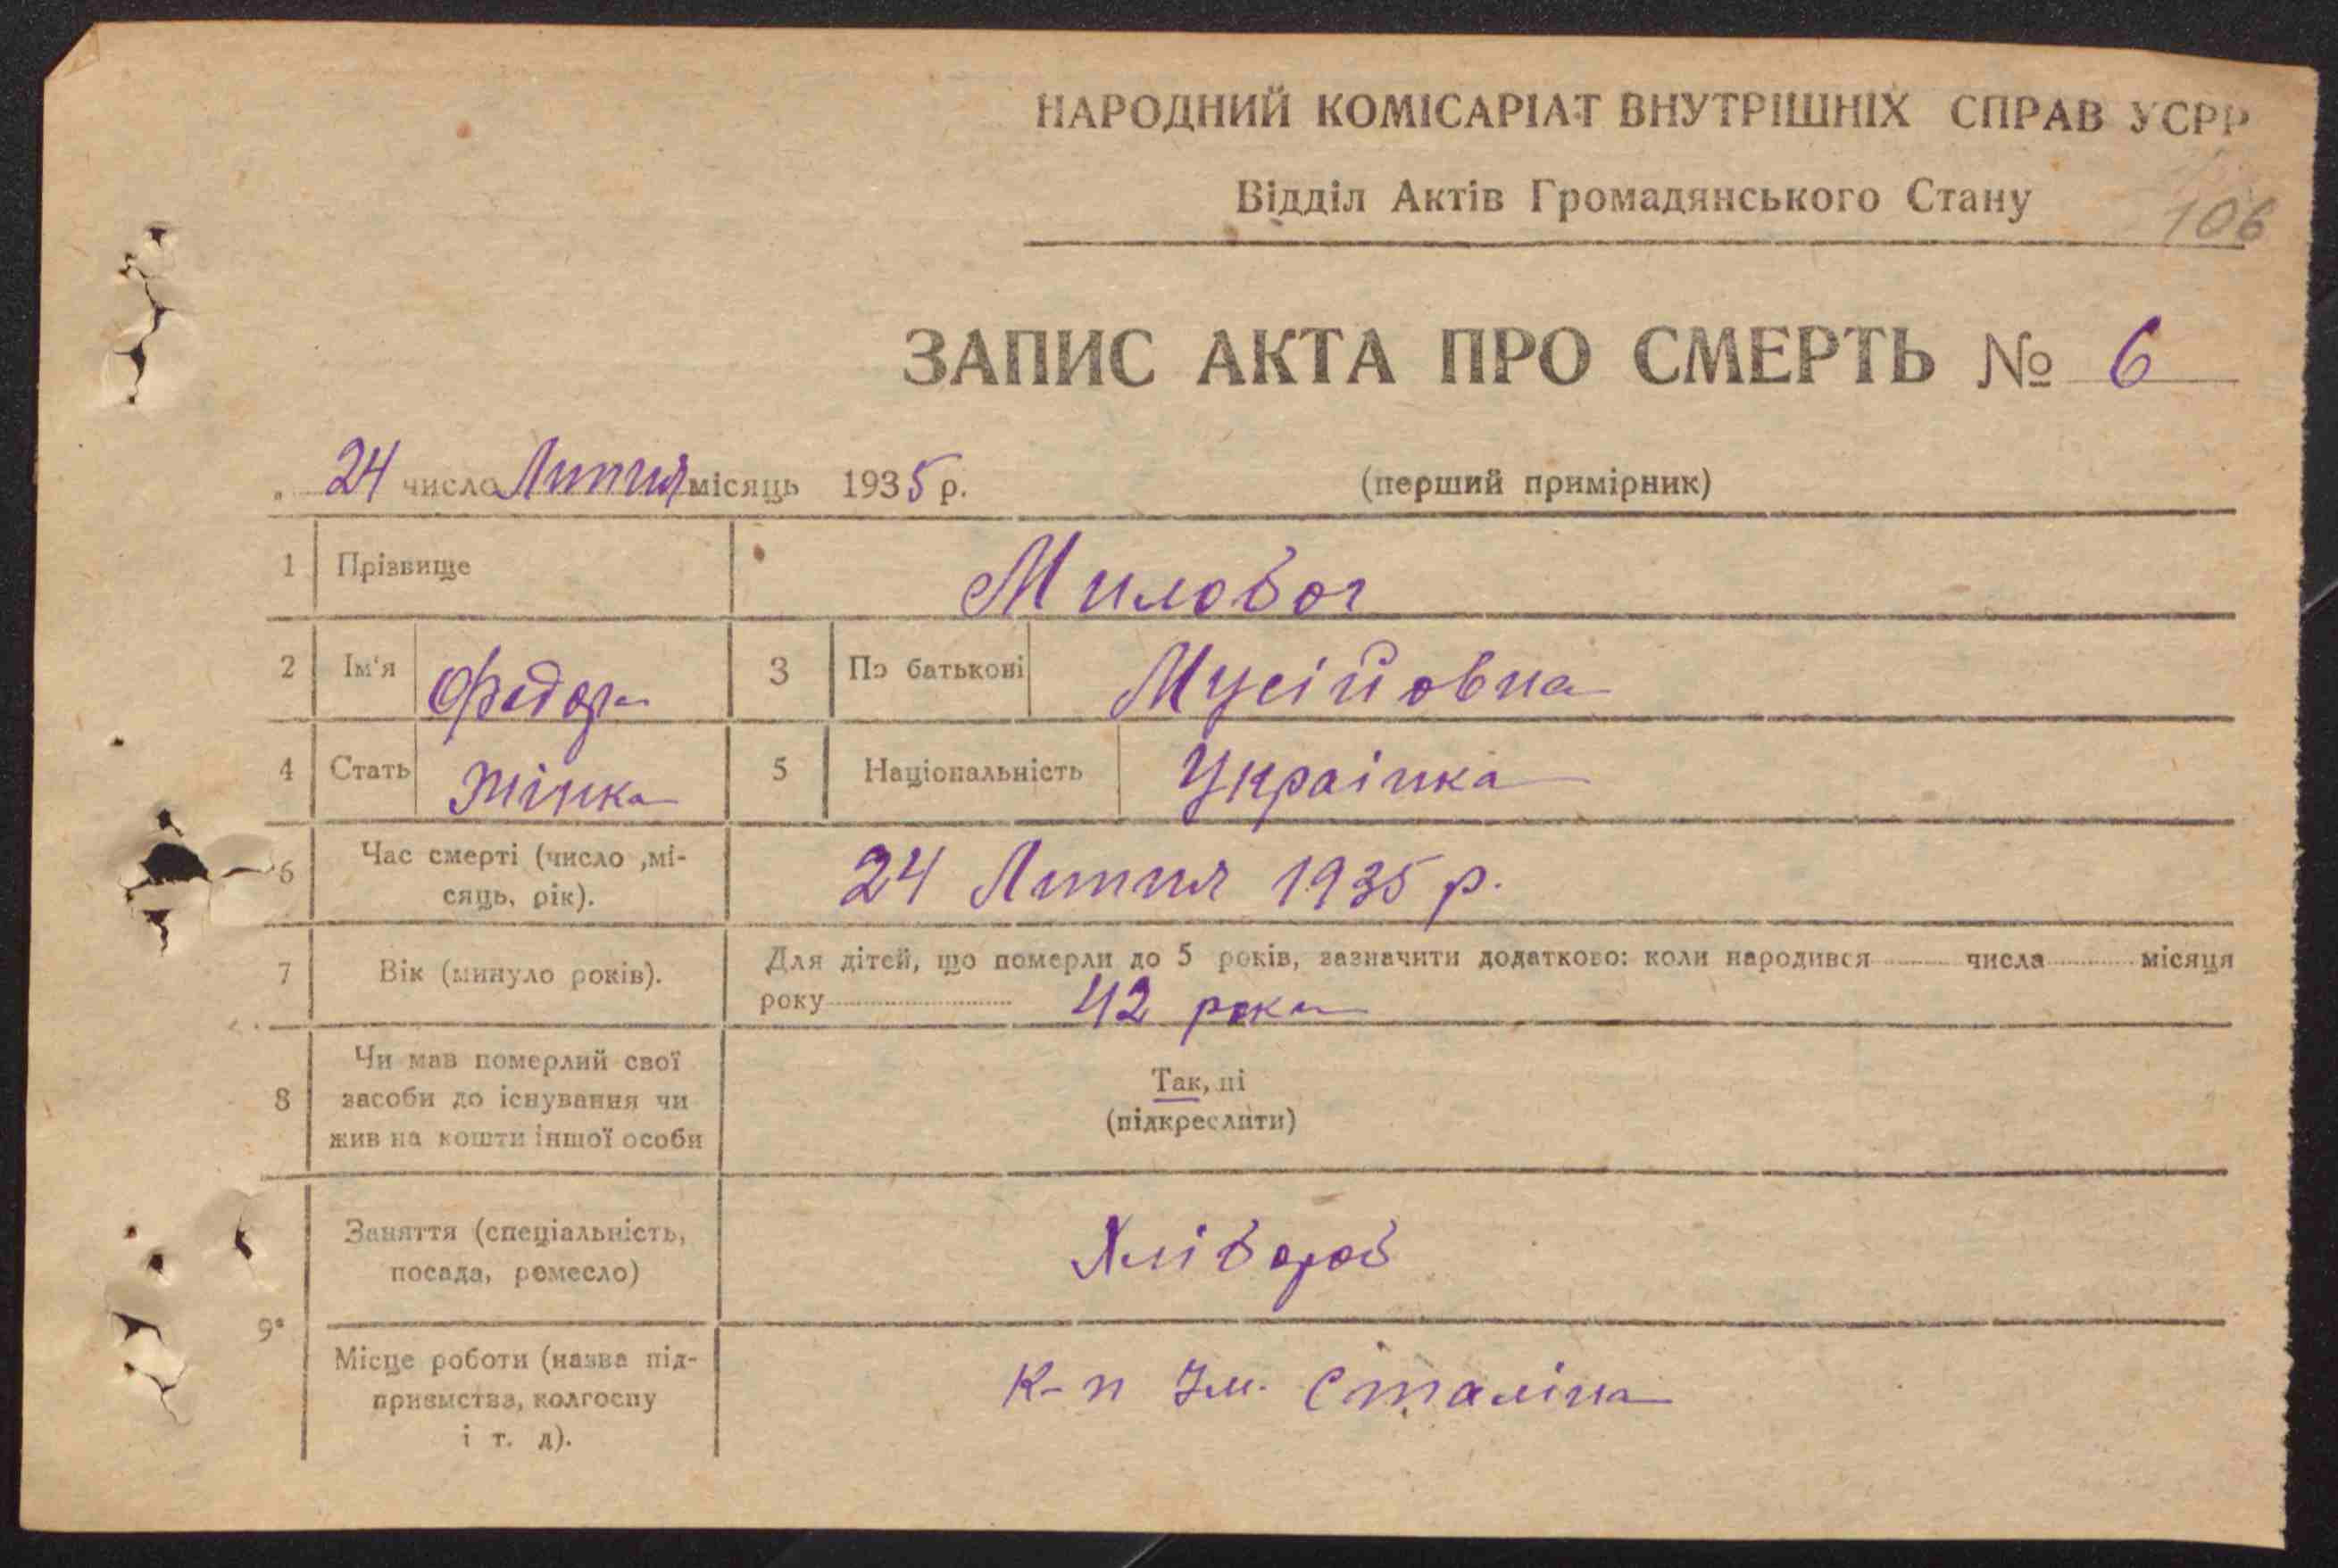 НАРОДНИЙ КОМІСАРІАТ ВНУТРІШНІХ СПРАВ УСРР
Відділ Актів Громадянського Стану
106
ЗАПИС АКТА ПРО СМЕРТЬ № 6
24 число Липня місяць 1935 р. (перший примірник)
1 Прізвище Милобог
2 Ім'я Федора 3 По батькові Мусійовна
4 Стать Жінка 5 Національність Украінка
6 Час смерті (число ,мі-
сяць, рік). 24 Липня 1935 р.
7 Вік (минуло років). Для дітей, що померли до 5 років, зазначити додатково: коли народився числа місяця
року 42 роки
8 Чи мав померлий свої
засоби до існування чи
жив на кошти іншої особи
Так, ні
(підкреслити)
9
Заняття (спеціальність,
посада, ремесло)
Хлібороб
Місце роботи (назва під-
приємства, колгоспу
і т. д).
к-п Ім. Сталіна